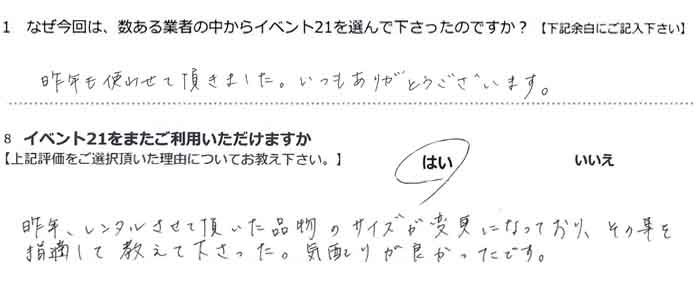 1 なぜ今回は、数ある業者の中からイベント21を選んで下さったのですか？【下記余白にご記入下さい】
昨年も使わせて頂きました。いつもありがとうございます。
8 イベント21をまたご利用いただけますか
【上記評価をご選択頂いた理由についてお教え下さい。】 はい いいえ
昨年、レンタルさせて頂いた品物のサイズが変更になっており、その事を
指摘して教えて下さった。気配りが良かったです。